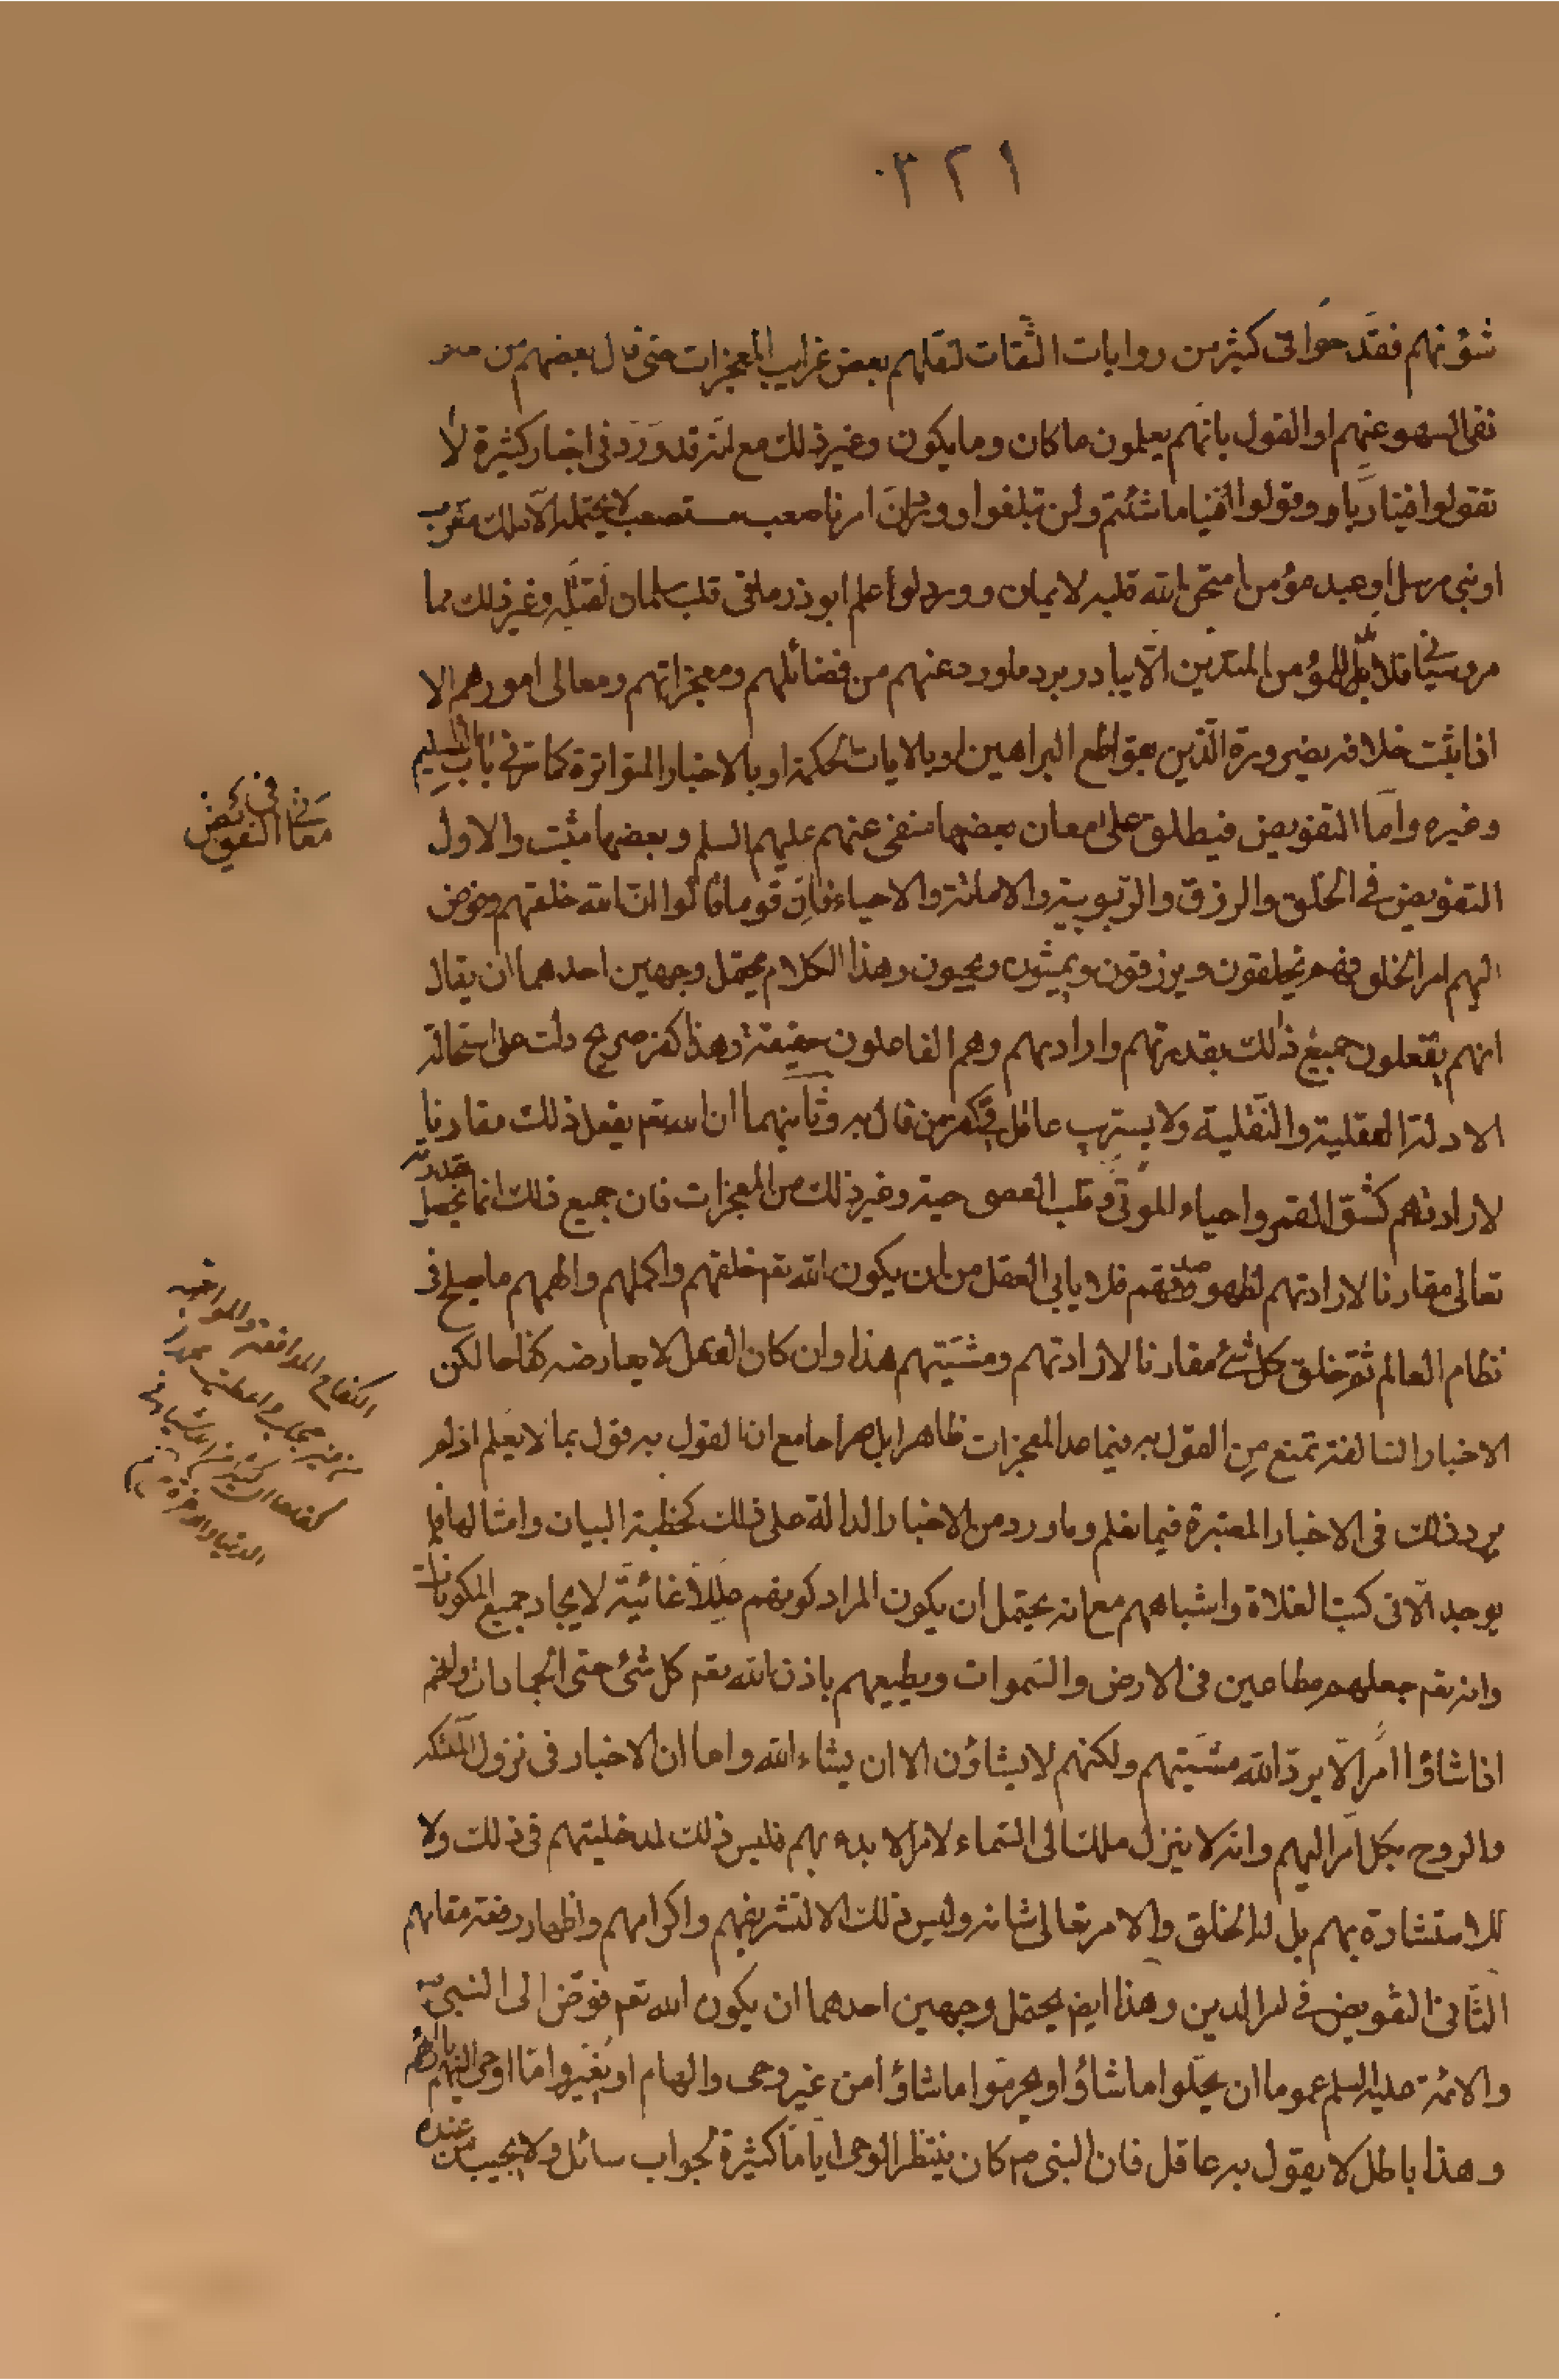 ٣٢١
شؤنهم فقدحوا في كثير من روايات الثقات لنقلهم بعض غرايب المعجزات حتى قال بعضهم من
نفى السهو عنهم او القول بانهم يعلمون ما كان وما يكون وغير ذلك مع انه قد ورد في اخبار كثيرة لا
تقولوا فينا ربا و قولوا فينا ما شئتم ولن تبلغوا وورد ان امرنا صعب مستصعب لا يحتمله الا ملك مقرب
او نبي مرسل او عبد مؤمن امتحن الله قلبه لايمان وورد لو علم ابوذر ما في قلب سلمان لقتله وغير ذلك مما
مر وسياتي فلا بد للمؤمن المتدين الا يبادر برد ما ورد عنهم من فضائلهم ومعجزاتهم ومعالى امورهم الا
اذا ثبت خلافه بضرورة الدين بقواطع البراهين او بالايات المحكمة او بالاخبار المتواترة كما مر في باب التسليم
وغيره واما التفويض فيطلق على معان بعضها منفى عنهم عليهم السلم وبعضها مثبت والاول
في معاني التفويض
التفويض في الخلق والرزق والربوبية والاماتة والاحياء فان قوما قالوا ان الله خلقهم وفوض
اليهم امر الخلق فهم يخلقون ويرزقون ويميتون ويحيون وهذا الكلام يحتمل وجهين احدهما ان يقال
انهم يفعلون جميع ذلك بقدرتهم وارادتهم وهم الفاعلون حقيقة وهذا كفر صريح دلت على استحالته
الادلة العقلية والنقلية ولا يستريب عاقل في كفر من قال به وثانيهما ان الله تع يفعل ذلك مقارنا
لارادتهم كشق القمر واحياء الموتى وقلب العصى حية وغير ذلك من المعجزات فان جميع ذلك انما تحصل بقدرته
تعالى مقارنا لارادتهم لظهور صدقهم فلا يابى العقل من ان يكون الله تع خلقهم واكملهم والهمهم ما يصلح في
نظام العالم ثم خلق كل شئ مقارنا لارادتهم ومشيتهم هذا وان كان العقل لا يعارضه كفاحا لكن
الاخبار السالفة تمنع من القول به فيما عدا المعجزات ظاهرا بل صراحا مع ان القول به قول بما لا يعلم اذ لم
يرد ذلك في الاخبار المعتبرة فيما نعلم وما ورد من الاخبار الدالة على ذلك كخطبة البيان وامثالها فلم
يوجد الا في كتب الغلاة واشباههم مع انه يحتمل ان يكون المراد كونهم عللا غائية لايجاد جميع المكونات
وانه تع جعلهم مطاعين في الارض والسموات ويطيعهم باذن الله تع كل شئ حتى الجمادات وانهم
اذا شاؤا امرا لا يرد الله مشيتهم ولكنهم لا يشاؤن الا ان يشاء الله واما ان الاخبار في نزول الملئكة
والروح بكل امر اليهم وانه لا ينزل ملك الى السماء لامر الا بدء بهم فليس ذلك لمدخليتهم في ذلك ولا
للاستشارة بهم بل له الخلق والامر تعالى شانه وليس ذلك الا لتشريفهم واكرامهم واظهار رفعة مقامهم
الثاني التفويض في امر الدين وهذا ايض يحتمل وجهين احدهما ان يكون الله تع فوض الى النبي ص
والائمة عليه السلم عموما ان يحلوا ما شاؤا ويحرموا ما شاؤا من غير وحى والهام او يغيروا ما اوحى اليهم بارائهم
وهذا باطل لا يقول به عاقل فان النبي ص كان ينتظر الوحى اياما كثيرة لجواب سائل ولا يجيب من عنده
الكفاح المدافعة والمواجهة